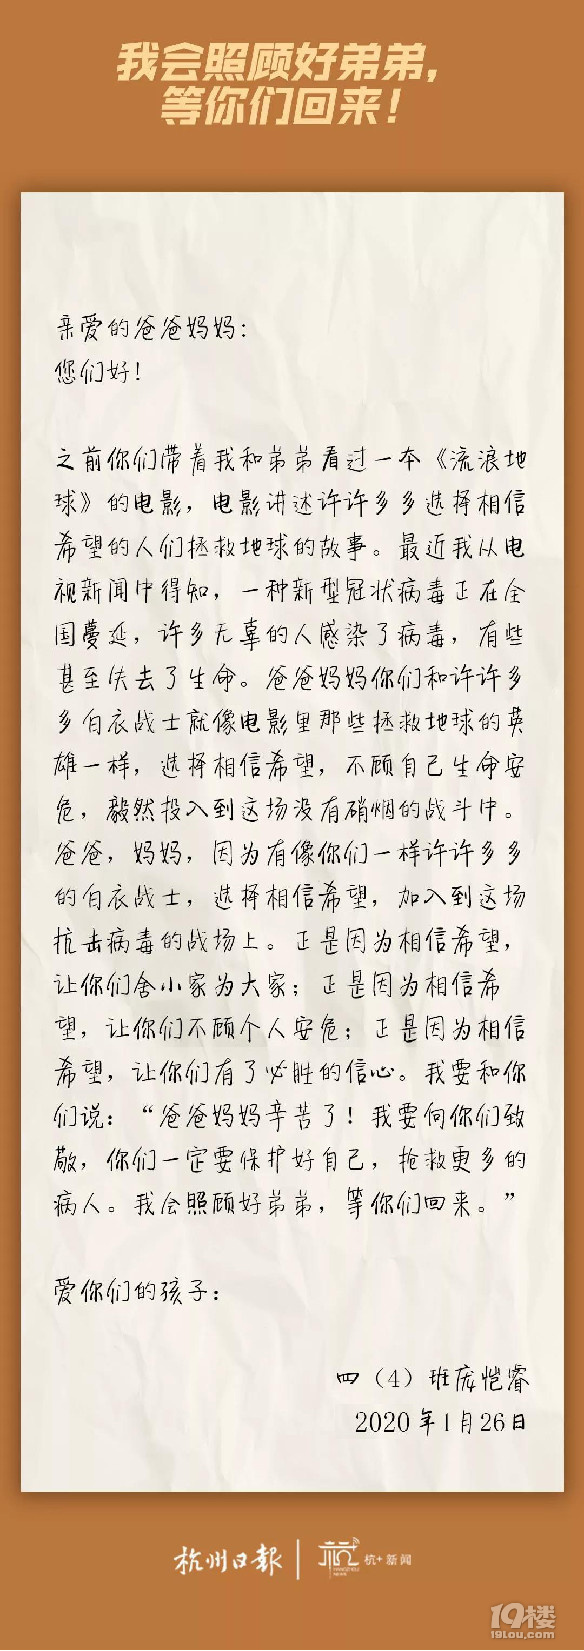 我会照顾好弟弟，
等你们回来！
亲爱的爸爸妈妈：
您们好！
之前你们带着我和弟弟看过一本《流浪地
球》的电影，电影讲述许许多多选择相信
希望的人们拯救地球的故事。最近我从电
视新闻中得知，一种新型冠状病毒正在全
国蔓延，许多无辜的人感染了病毒，有些
甚至失去了生命。爸爸妈妈你们和许许多
多白衣战士就像电影里那些拯救地球的英
雄一样，选择相信希望，不顾自己生命安
危，毅然投入到这场没有硝烟的战斗中。
爸爸，妈妈，因为有像你们一样许许多多
的白衣战士，选择相信希望，加入到这场
抗击病毒的战场上。正是因为相信希望，
让你们舍小家为大家；正是因为相信希
望，让你们不顾个人安危；正是因为相信
希望，让你们有了必胜的信心。我要和你
们说：“爸爸妈妈辛苦了！我要向你们致
敬，你们一定要保护好自己，抢救更多的
病人。我会照顾好弟弟，等你们回来。”
爱你们的孩子：
四（4）班庞恺睿
2020年1月26日
杭州日報 杭+新闻
19楼
19lou.com